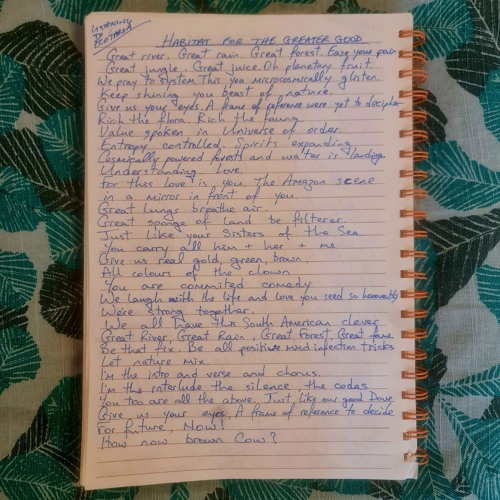 LISTENING
TO
ECOTARIA
HABITAT FOR THE GREATER GOOD
Great river. Great rain. Great forest. Ease your pain
Great jungle. Great juice. Oh planetary fruit.
We pray to system. This you microcosmically glisten.
Keep shining you beast of nature.
Give us your eyes. A frame of reference were yet to decipher
Rich the flora. Rich the fauna
Value spoken in Universe of order.
Entropy controlled. Spirits expanding
Cosmically powered forests and water is landing.
Understanding. Love.
For this love is you. The Amazon scene
in a mirror in front of you.
Great lungs breathe air.
Great sponge of land be filterer.
Just like your Sisters of the Sea
You carry all him + her + me
Give us real gold, green, brown.
All colours of the clown
You are commited comedy
We laugh with the life and love you seed so honourably
We're strong together.
We all have this South American clever
Great River, Great Rain, Great Forest, Great fame.
Be that fix. Be all positive mind infection tricks
Let nature mix.
I'm the intro and verse and chorus.
I'm the interlude the silence the codas
You too are all the above. Just like our good Dove
Give us your eyes, A frame of reference to decide
For future, Now!
How now brown Cow?